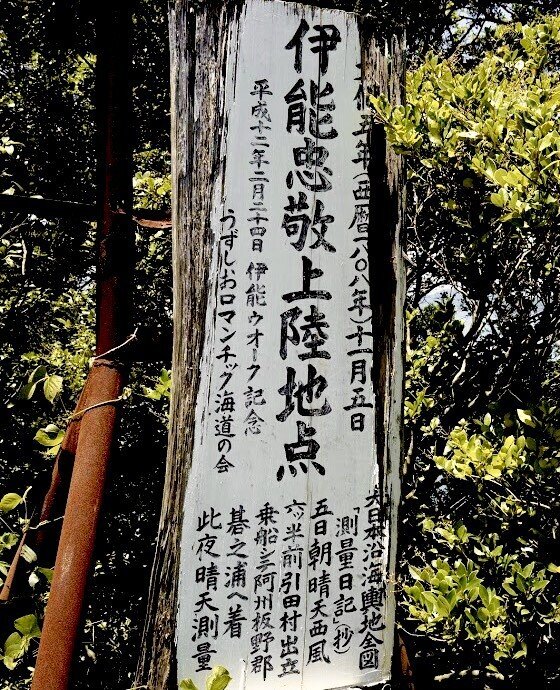 文化五年(西暦一八〇八年)十一月五日
伊能忠敬上陸地点
平成十二年二月二十四日 伊能ウオーク記念
うずしおロマンチック海道の会
大日本沿海輿地全図
「測量日記」(抄)
五日朝晴天西風
六ツ半前引田村出立
乗船シ三阿州板野郡
碁之浦へ着
此夜晴天測量